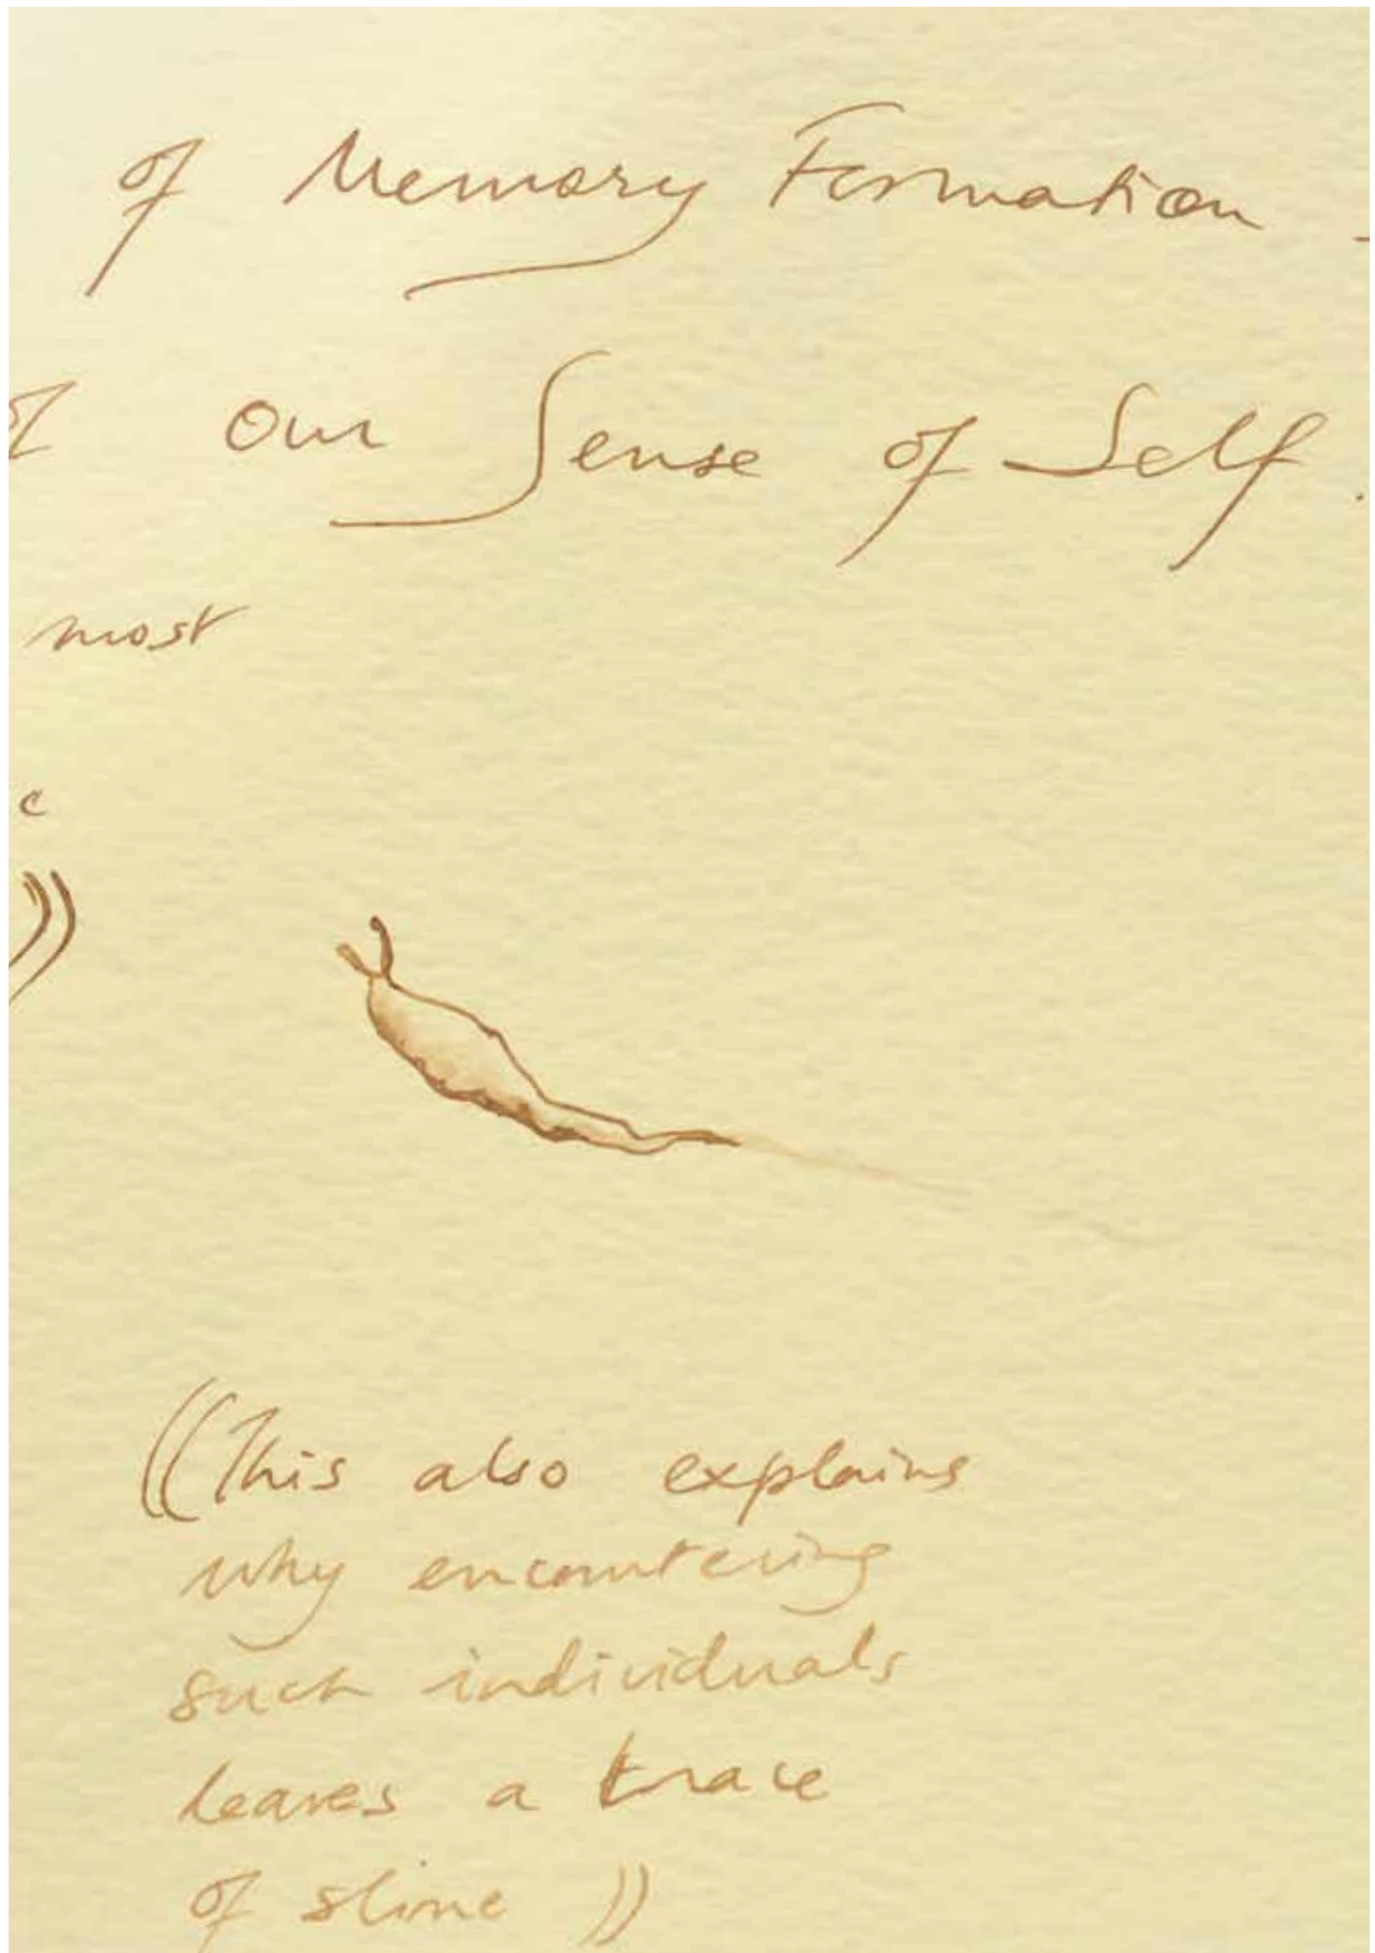 of Memory Formation -
of our Sense of Self.
most
c
))
((This also explains
why encountering
such individuals
leaves a trace
of slime ))